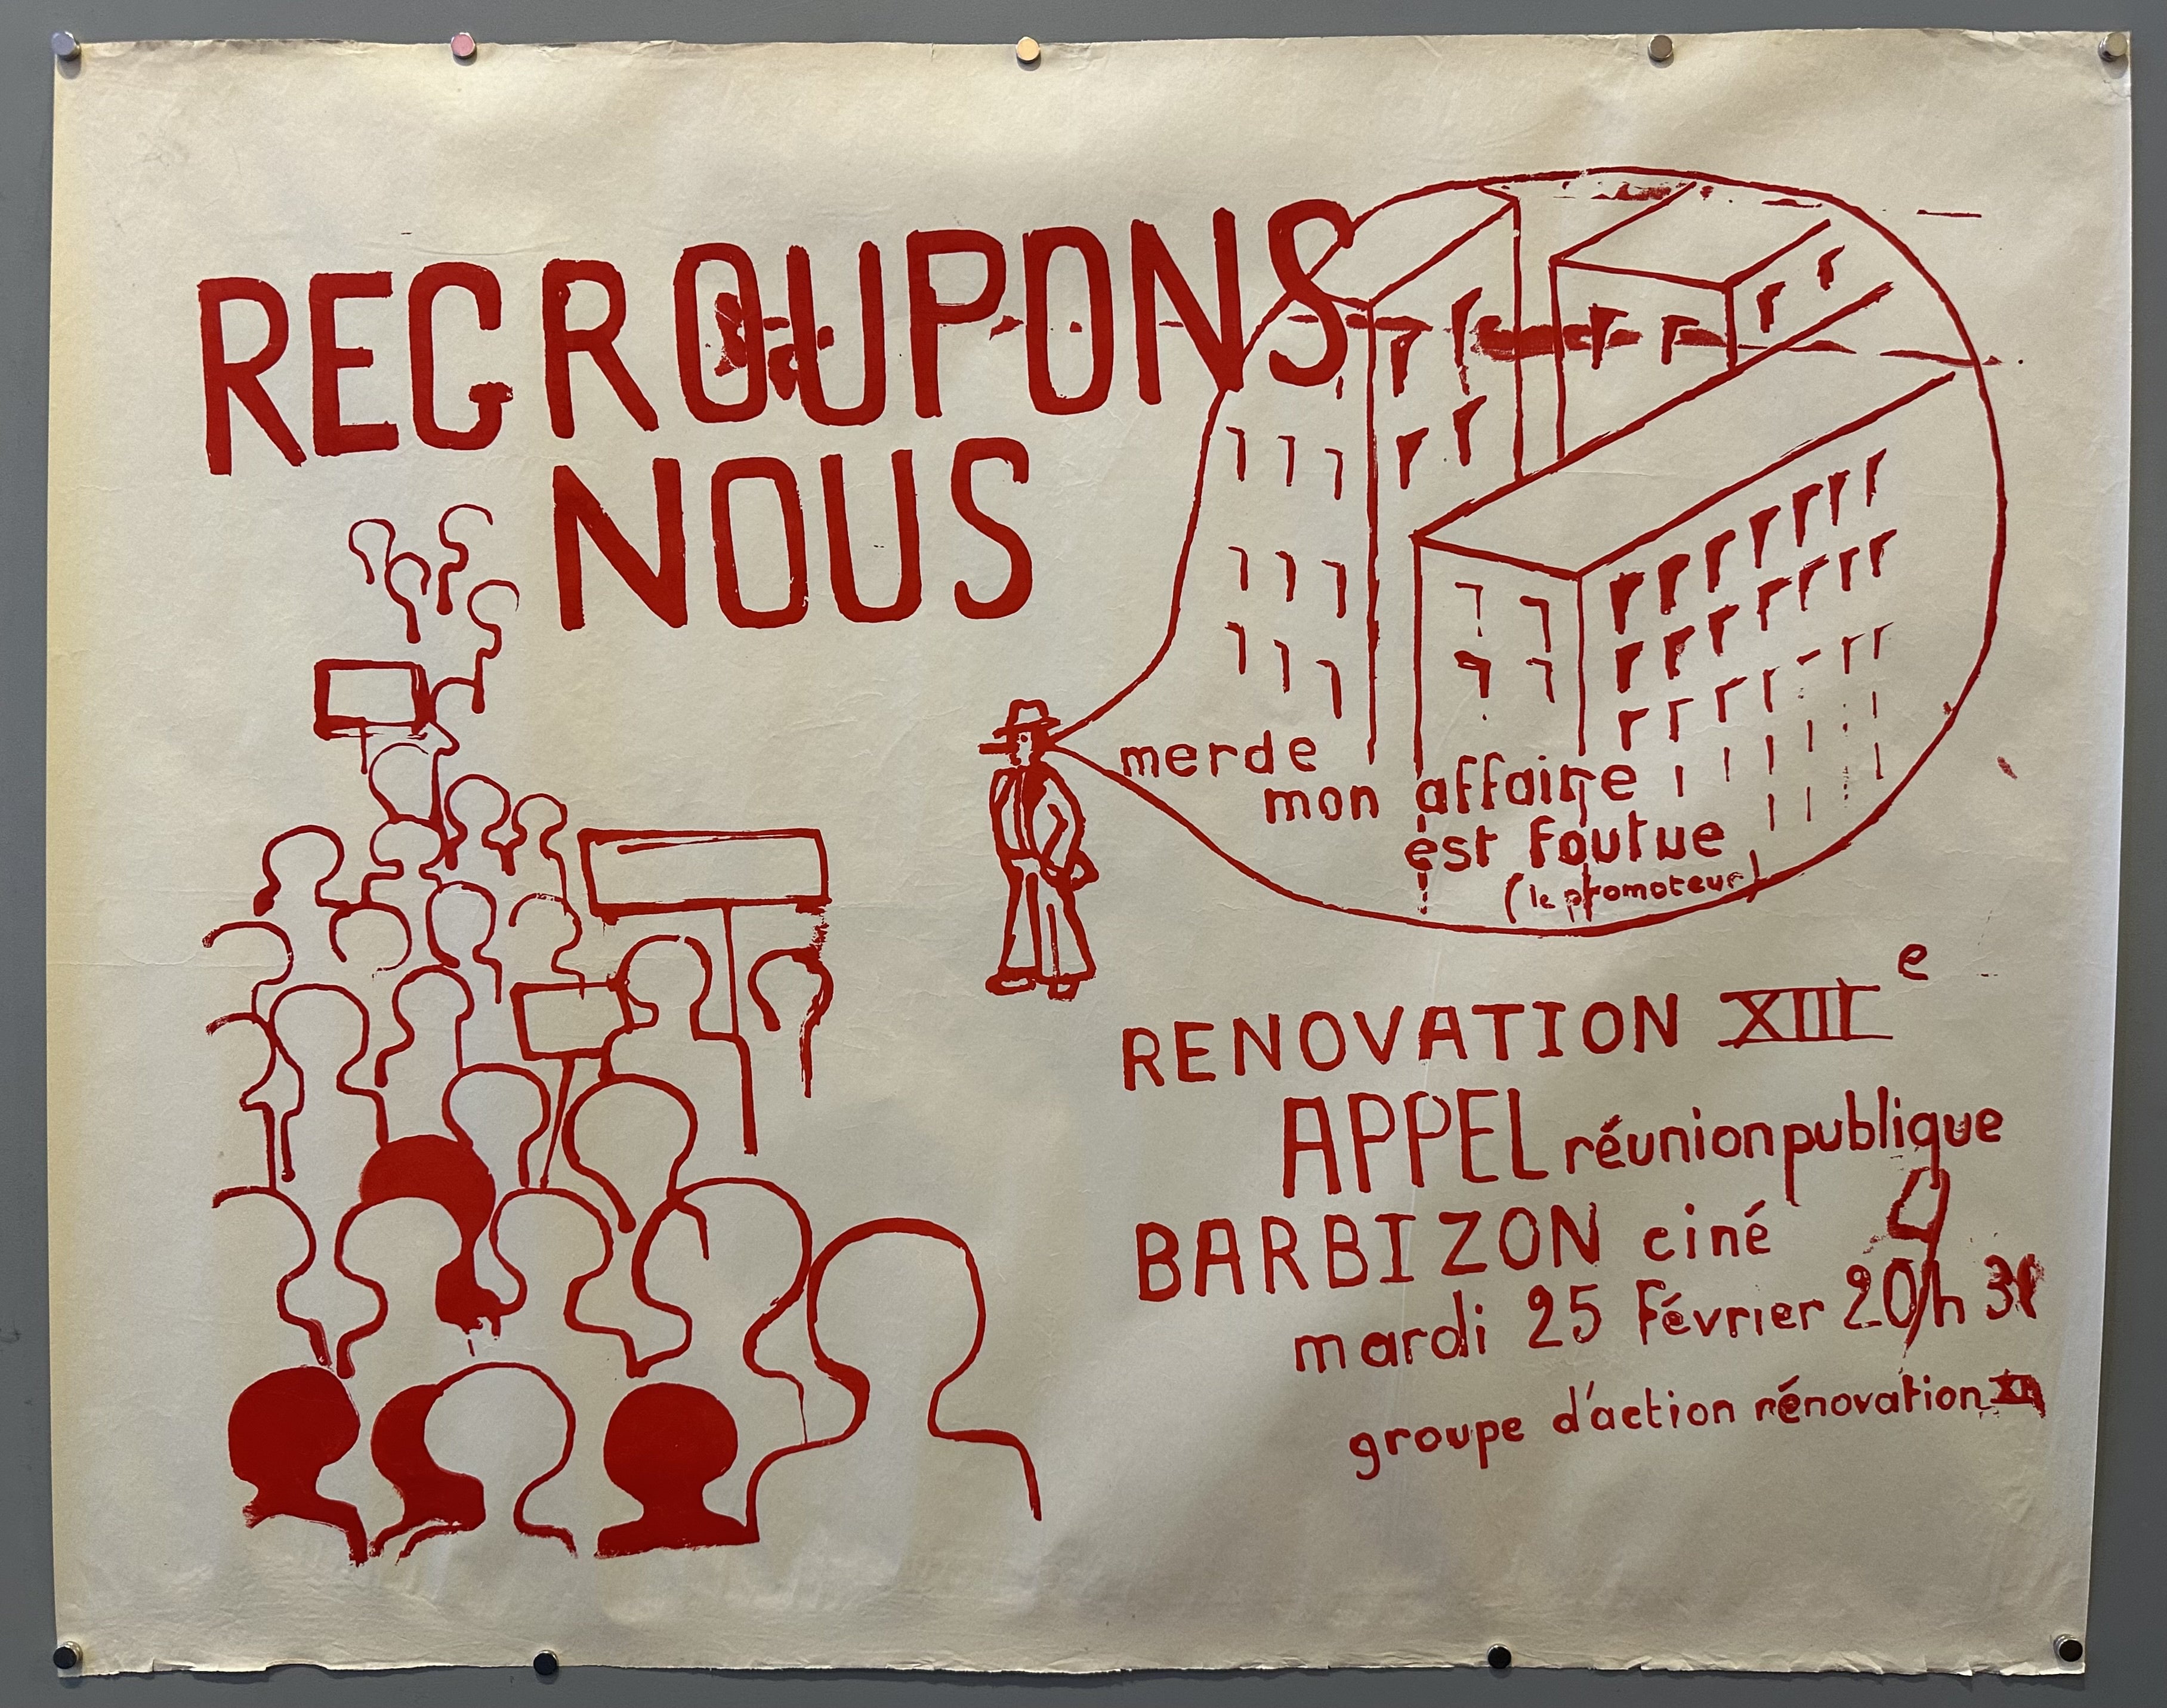 REGROUPONS
NOUS
merde
mon affaire
est foutue
(le promoteur)
RENOVATION XIII e
APPEL réunion publique
BARBIZON ciné
mardi 25 février 20h 30
groupe d'action rénovation